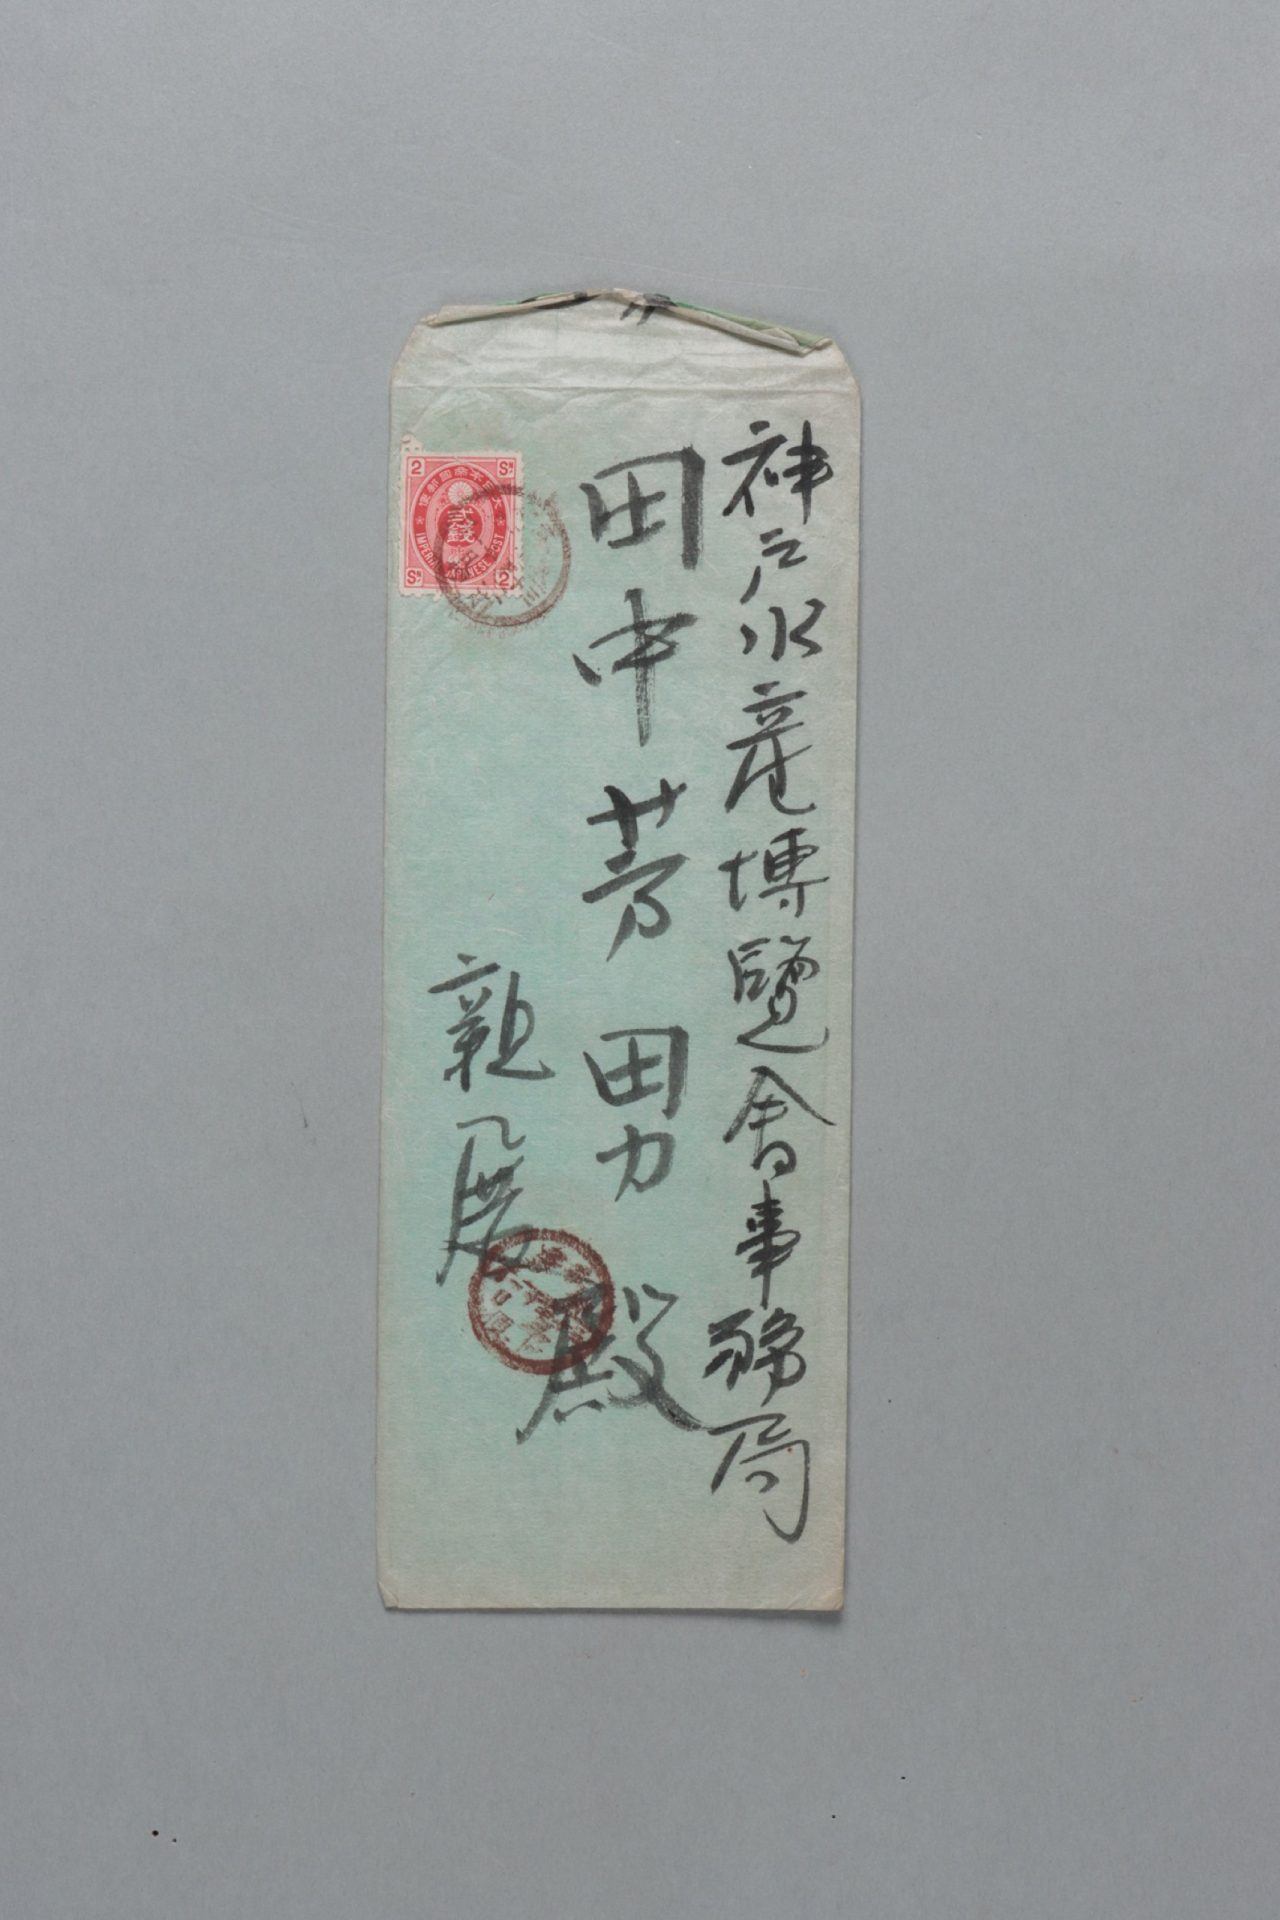 神戸水産博覽會事務局
田中芳男殿
親展
2 SN
大日本帝國郵便
貳錢
IMPERIAL JAPANESE POST
SN 2